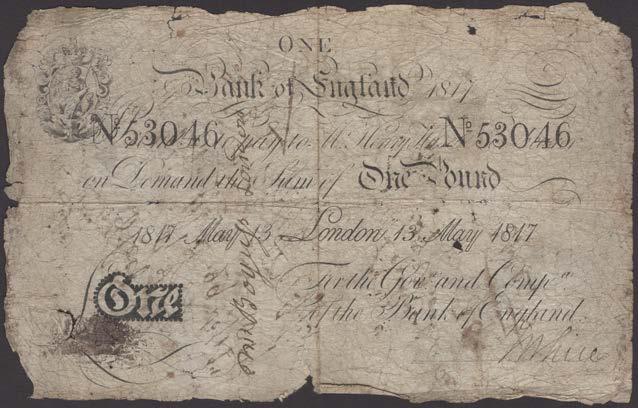 ONE
Bank of England 1817
No 53046 to pay to Mr. Henry No 53046
on Demand the Sum of One Pound
1817 May 13 London 13 May 1817
For the Govr and Compa
of the Bank of England
One